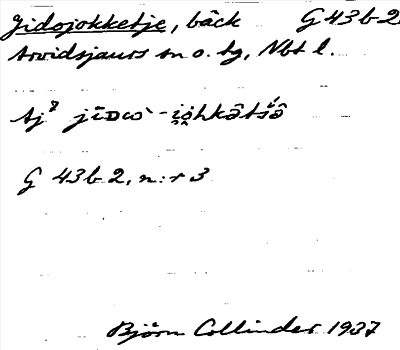 Jidojokketje, bäck G 43 b 2
Arvidsjaurs sn o. tg, Nbt l.
G 43 b 2, n:r 3
Björn Collinder 1937